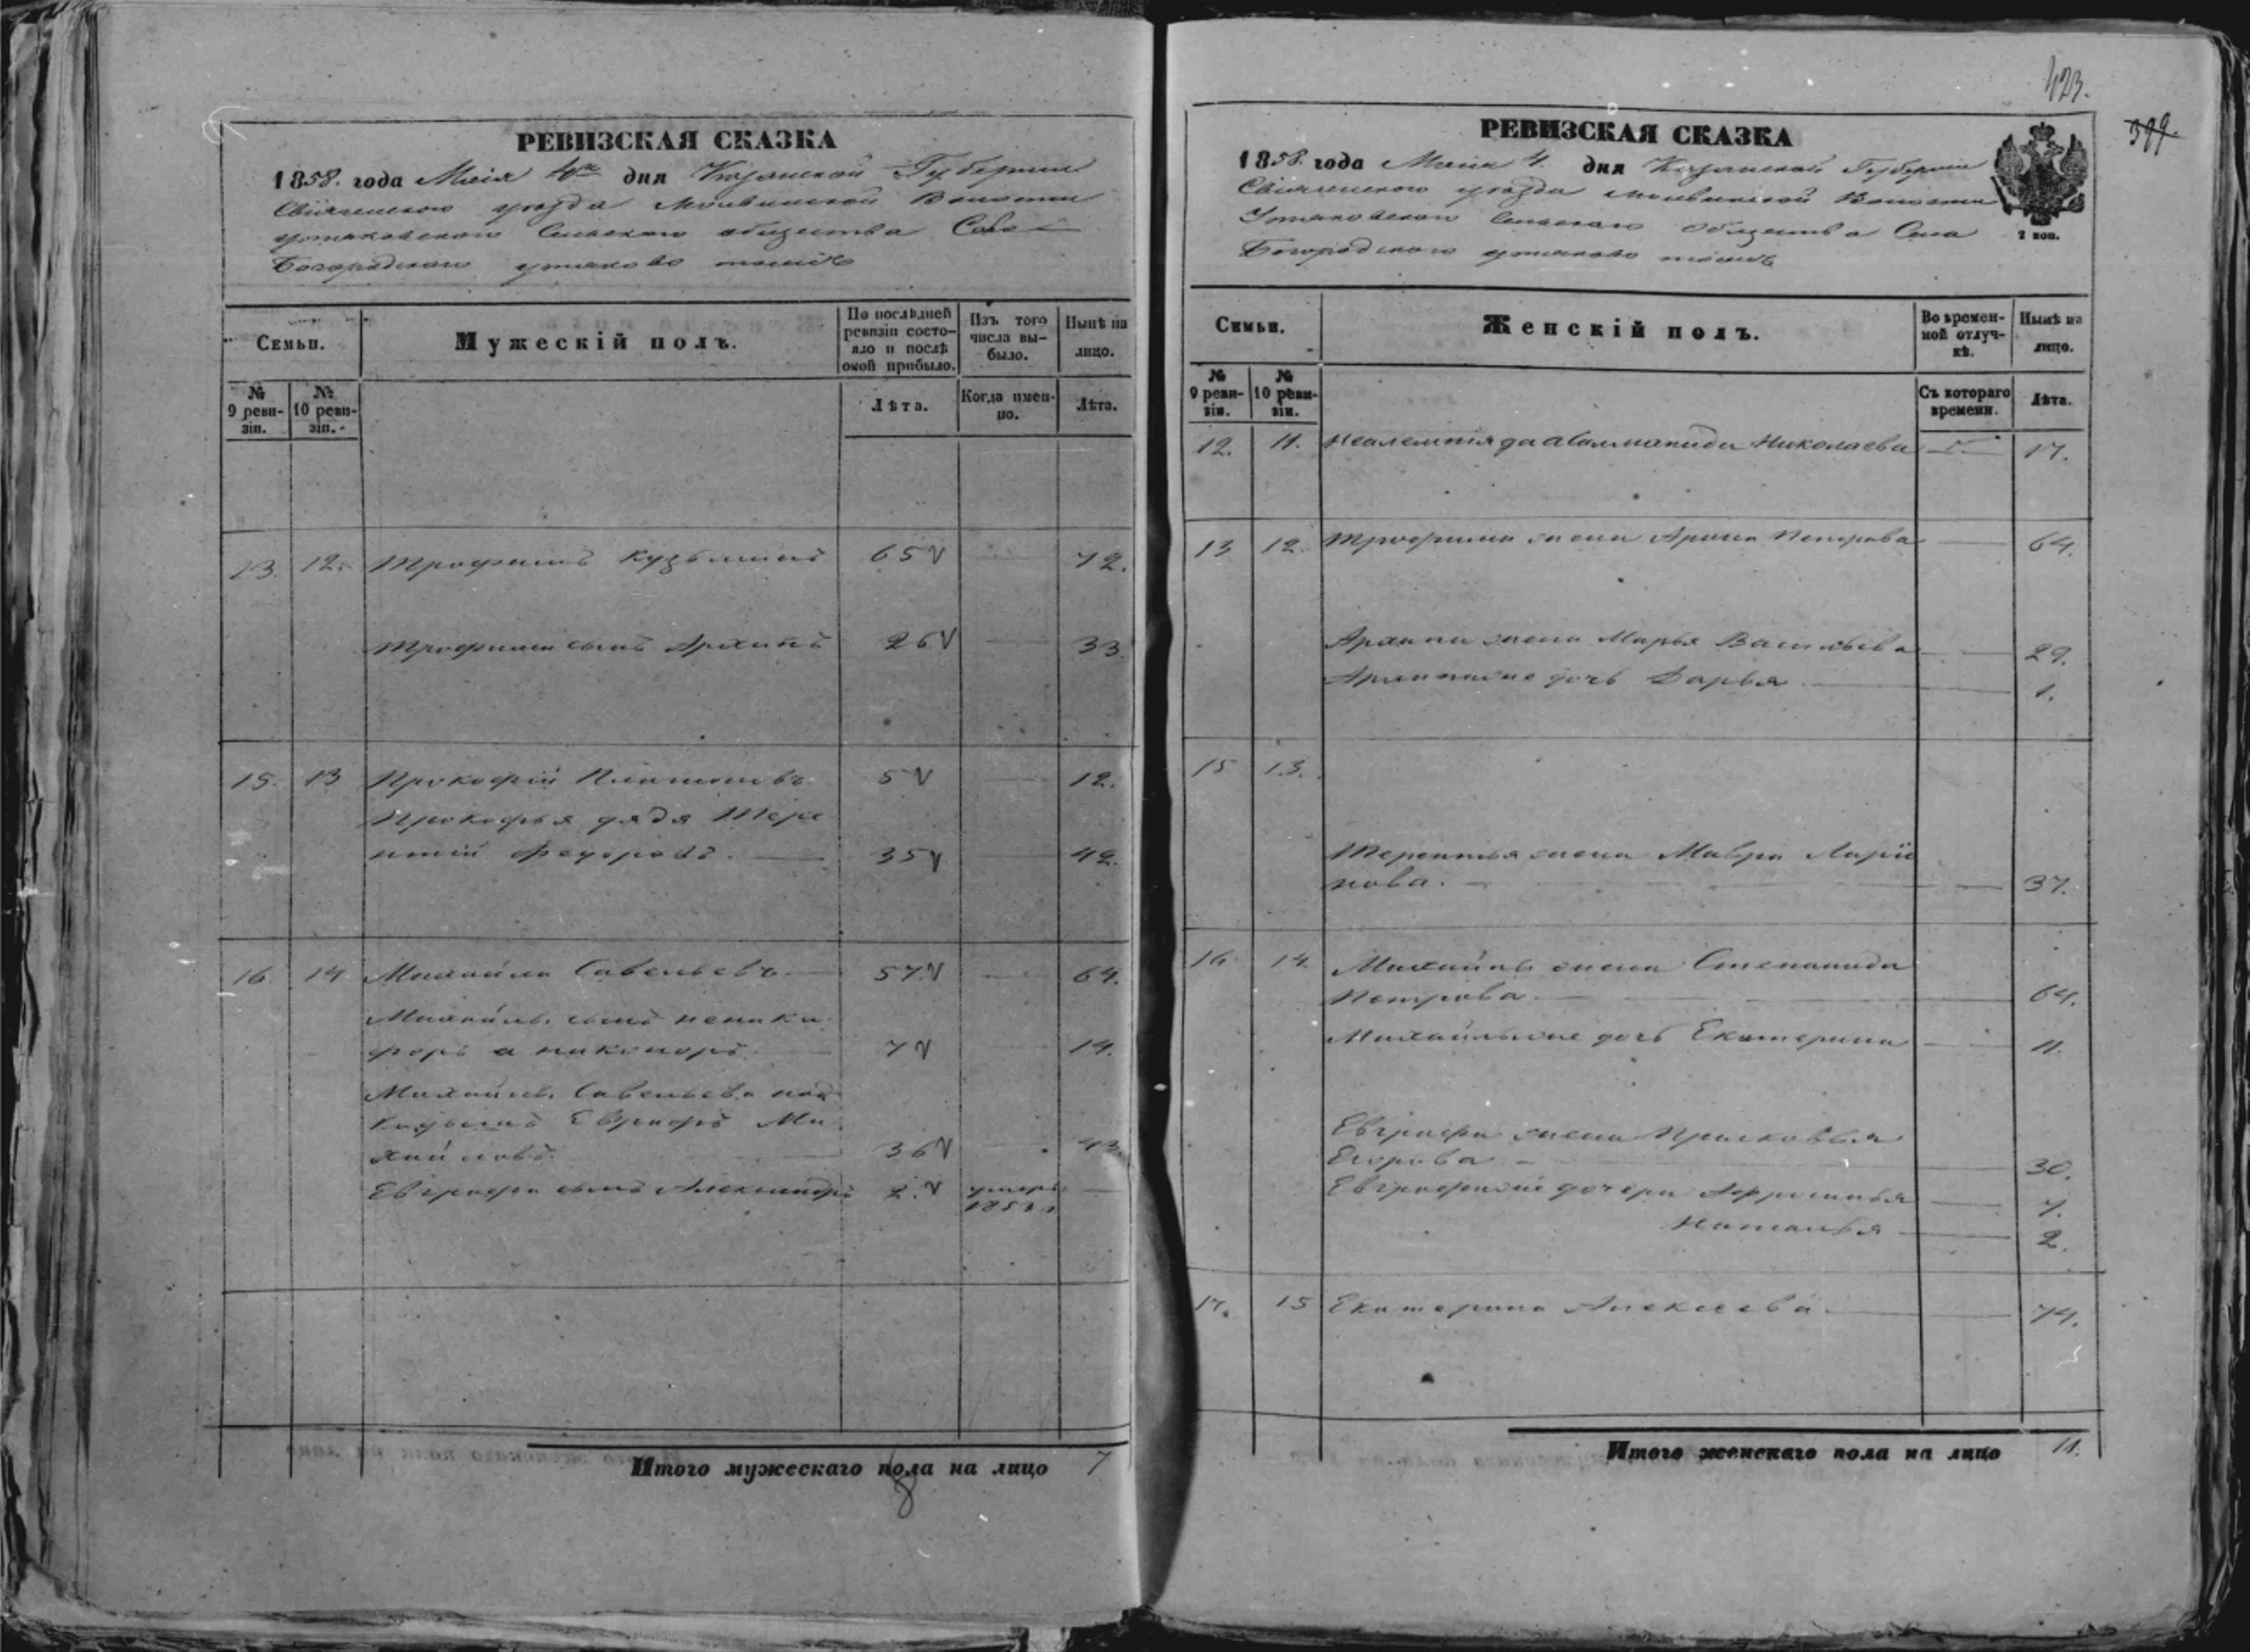 РЕВИЗСКАЯ СКАЗКА
1858. года Маія 4го дня Казанской Губерніи
Свіяжскаго уѣзда Молвинской Волости
Утяковскаго Сельскаго общества Села
Богородскаго утяково тожъ
Семьи.
№ 9 ревизіи.
№ 10 ревизіи.
Мужескій полъ.
По послѣдней ревизіи состояло и послѣ оной прибыло.
Лѣта.
Изъ того числа выбыло.
Когда именно.
Нынѣ на лицо.
Лѣта.
13. 12. Трофимъ Кузьминъ 65 72.
Трофима сынъ Архипъ 26 33.
15. 13 Прокофій Платоновъ 5 12.
Прокофья дядя Тере
нтій Федоровъ. 35 42.
16 14 Михайла Савельевъ 57. 64.
Михайлы сынъ
а никоноръ 7 14.
Михайлы Савельева
Евграфъ Ми
хайловъ. 36 43.
Евграфа сынъ Александръ 2. умеръ
Итого мужескаго пола на лицо 7
8
423.
399.
РЕВИЗСКАЯ СКАЗКА
1858. года Маія 4. дня Казанской Губерніи
Свіяжскаго уѣзда Молвинской Волости
Утяковскаго Сельскаго Общества Села
Богородскаго утяково тожъ
2 коп.
Семьи.
№ 9 ревизіи.
№ 10 ревизіи.
Женскій полъ.
Во временной отлучкѣ.
Съ котораго времени.
Нынѣ на лицо.
Лѣта.
12. 11. Николаева 17.
13 12. Трофима жена Арина Петрова 64.
Архипа жена Марья Васильева 29.
дочь Дарья 1.
15 13.
Терентья жена Мавра Ларіо
нова. 37.
16 14. Михайлы жена Степанида
Петрова 64.
дочь Екатерина 11.
Евграфа жена Прасковья
Егорова 30.
дочери Афросинья 7.
Наталья 2.
17. 15 Екатерина Алексеева 74.
Итого женскаго пола на лицо 11.